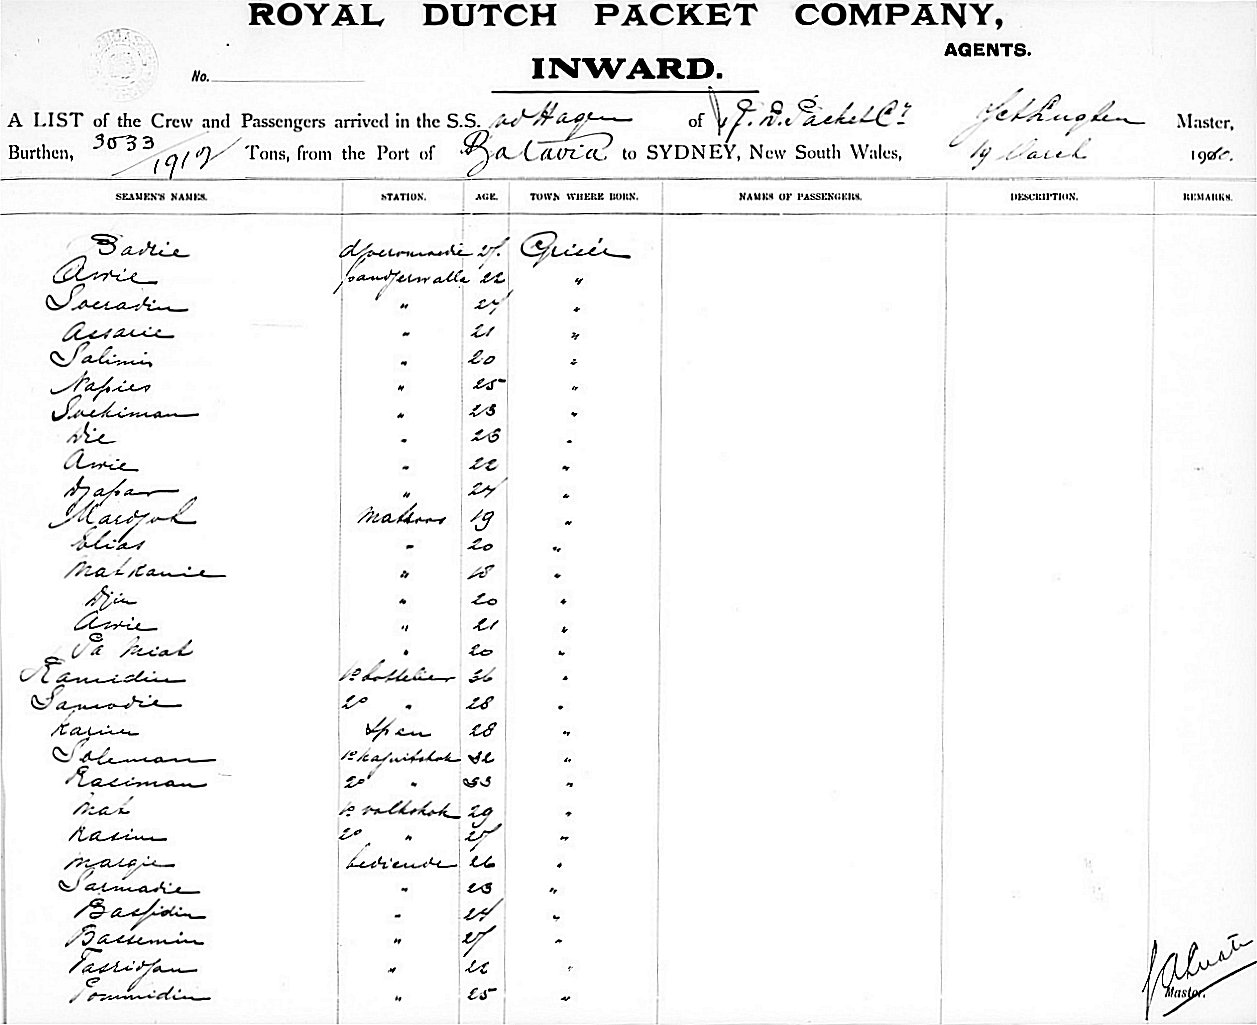 ROYAL DUTCH PACKET COMPANY,
AGENTS.
No.
INWARD.
A LIST of the Crew and Passengers arrived in the S.S. v d Hagen of R. D. Packet Cy Master,
Burthen, 3033/1917 Tons, from the Port of Batavia to SYDNEY, New South Wales, 19 March 1910.
SEAMEN'S NAMES. STATION. AGE. TOWN WHERE BORN. NAMES OF PASSENGERS. DESCRIPTION. REMARKS.
Badrie 27 Grisée
Awie 22 "
Soeradin " 24 "
Assarie " 21 "
Salimin " 20 "
Napies " 25 "
Soekiman " 23 "
Die " 23 "
Awie " 22 "
Djapar " 24 "
Mardjoek matroos 19 "
Elias " 20 "
Matkanie " 18 "
Djin " 20 "
Awie " 21 "
Pa Miat " 20 "
Ramidin 1e bottelier 36 "
Samodie 2e " 28 "
Karim 28 "
Soleman 1e kajuitskok 32 "
Rasiman 2e " 33 "
Mat 1e volkskok 29 "
Kasim 2e " 27 "
Margie bediende 26 "
Sarmadie " 23 "
Bassidin " 24 "
Bassemin " 27 "
Tasridjan " 22 "
Pommidin " 25 "
Master.